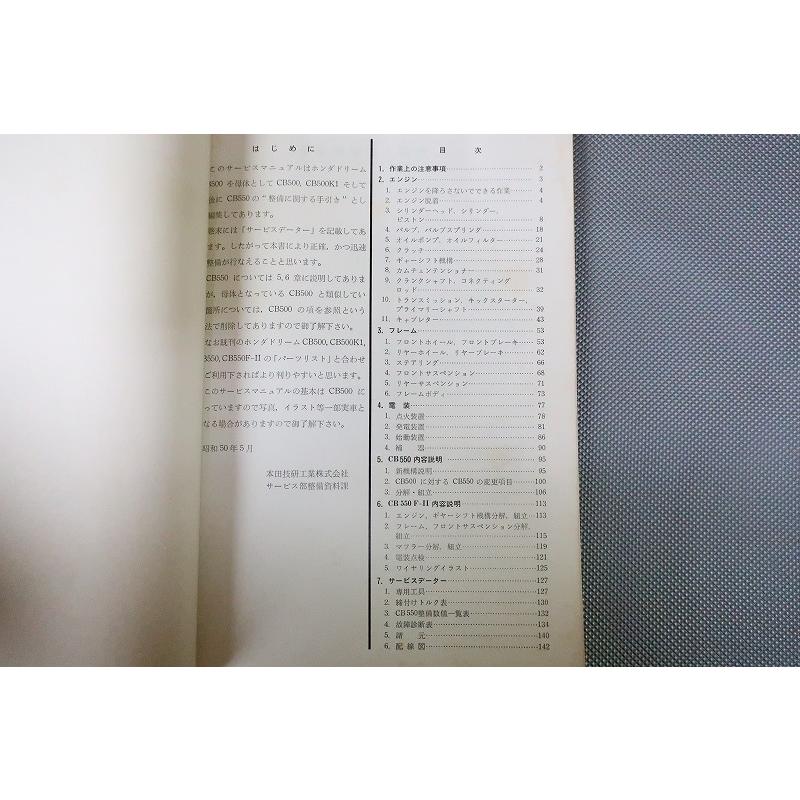 はじめに
このサービスマニュアルはホンダドリーム
B500 を母体として CB500, CB500K1 そして
後に CB550の“整備に関する手引き”とし
編集してあります。
巻末には「サービスデーター」を記載してあ
ます。したがって本書により正確, かつ迅速
整備が行なえることと思います。
CB550 については 5, 6 章に説明してありま
が, 母体となっている CB500 と類似してい
箇所については, CB500 の項を参照という
法で削除してありますので御了解下さい。
なお既刊のホンダドリームCB500, CB500K1,
B550, CB550F-IIの「パーツリスト」と合わせ
ご利用下さればより判りやすいと思います。
このサービスマニュアルの基本は CB500 に
っていますので写真, イラスト等一部実車と
なる場合がありますので御了解下さい。
昭和 50 年 5 月
本田技研工業株式会社
サービス部整備資料課
目次
1. 作業上の注意事項 2
2. エンジン 3
1. エンジンを降ろさないでできる作業 4
2. エンジン脱着 4
3. シリンダーヘッド, シリンダー,
ピストン 8
4. バルブ, バルブスプリング 18
5. オイルポンプ, オイルフィルター 21
6. クラッチ 24
7. ギャーシフト機構 28
8. カムチェンテンショナー 31
9. クランクシャフト, コネクティング
ロッド 32
10. トランスミッション, キックスターター,
プライマリーシャフト 39
11. キャブレター 43
3. フレーム 53
1. フロントホイール, フロントブレーキ 53
2. リヤーホイール, リヤーブレーキ 62
3. ステアリング 66
4. フロントサスペンション 68
5. リヤーサスペンション 71
6. フレームボディ 73
4. 電装 77
1. 点火装置 78
2. 発電装置 81
3. 始動装置 86
4. 補器 90
5. CB550 内容説明 95
1. 新機構説明 95
2. CB500 に対する CB550 の変更項目 100
3. 分解・組立 106
6. CB 550 F-II 内容説明 113
1. エンジン, ギヤーシフト機構分解, 組立 113
2. フレーム, フロントサスペンション分解,
組立 115
3. マフラー分解, 組立 119
4. 電装点検 121
5. ワイヤリングイラスト 125
7. サービスデーター 127
1. 専用工具 127
2. 締付けトルク表 130
3. CB550整備数値一覧表 132
4. 故障診断表 134
5. 諸元 140
6. 配線図 142